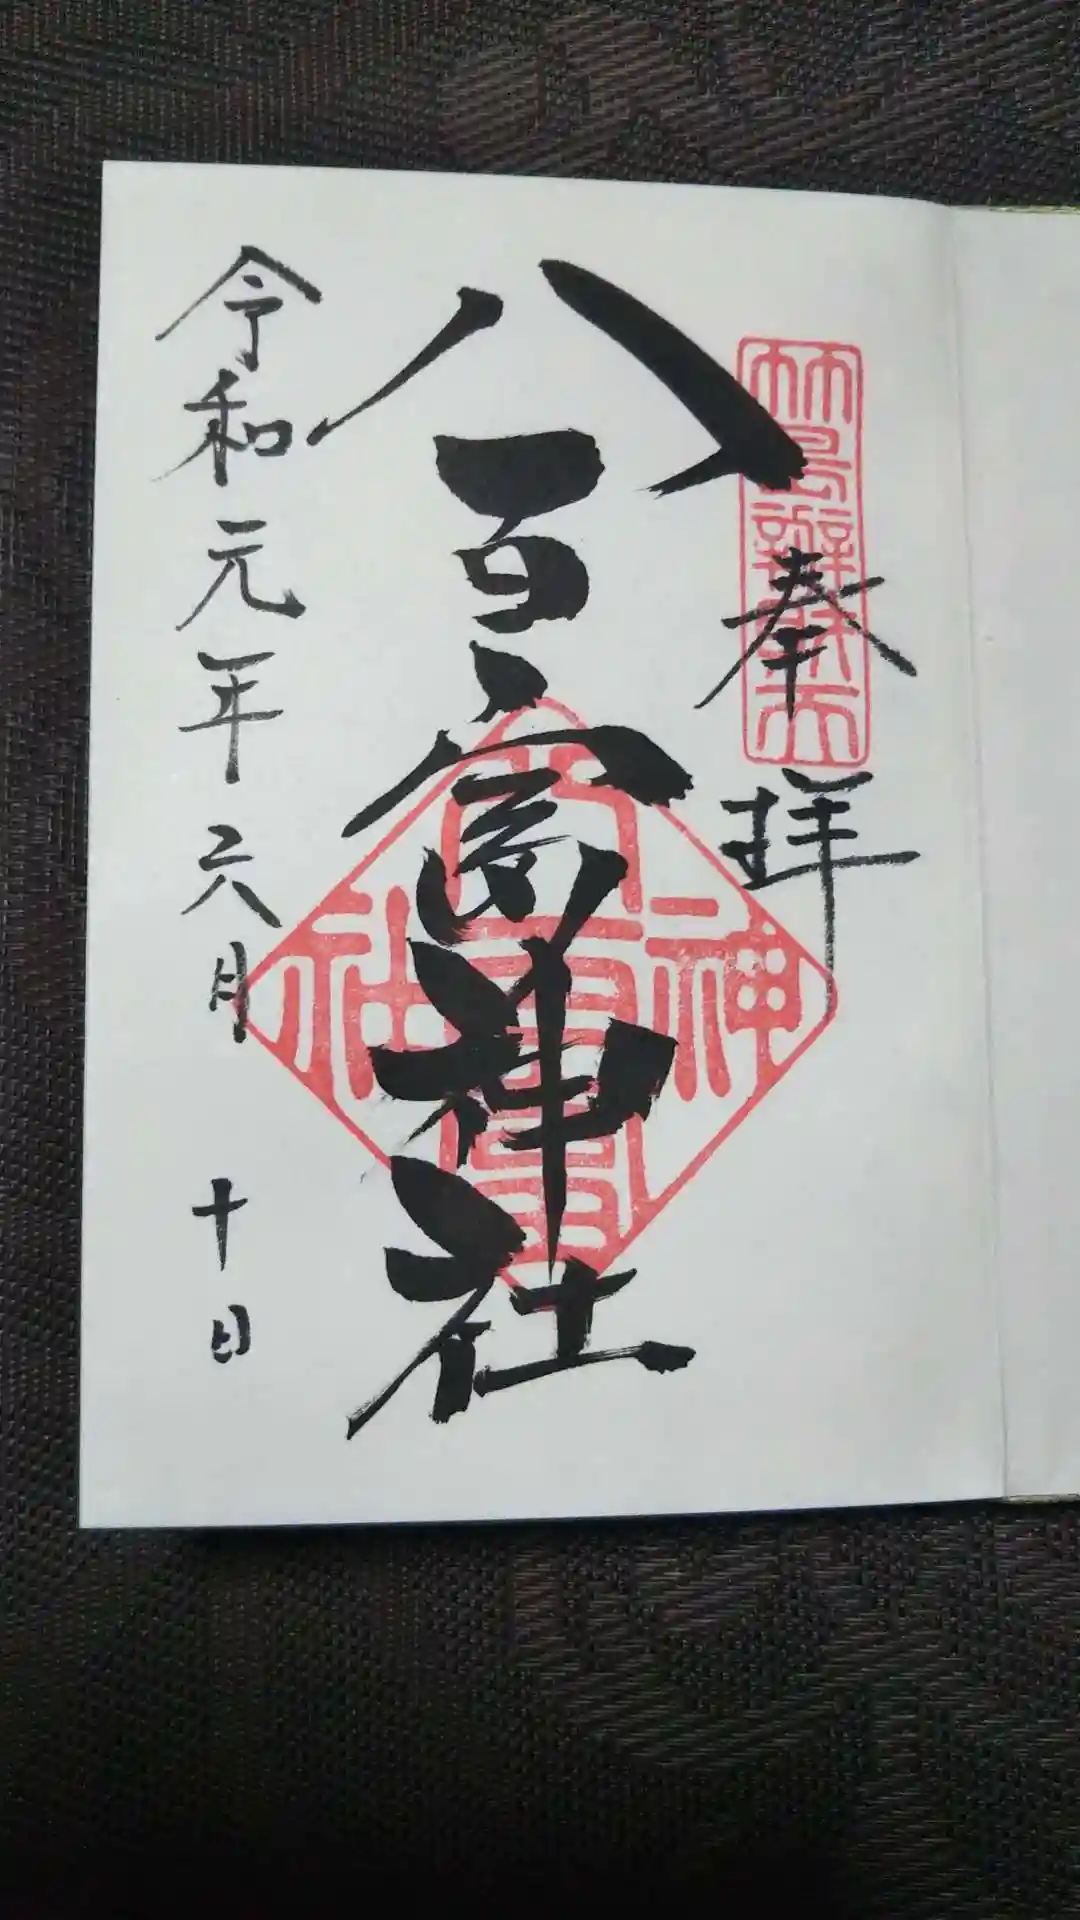 奉拝
竹島辨財天
八百富神社
八百富神社
令和元年六月十日